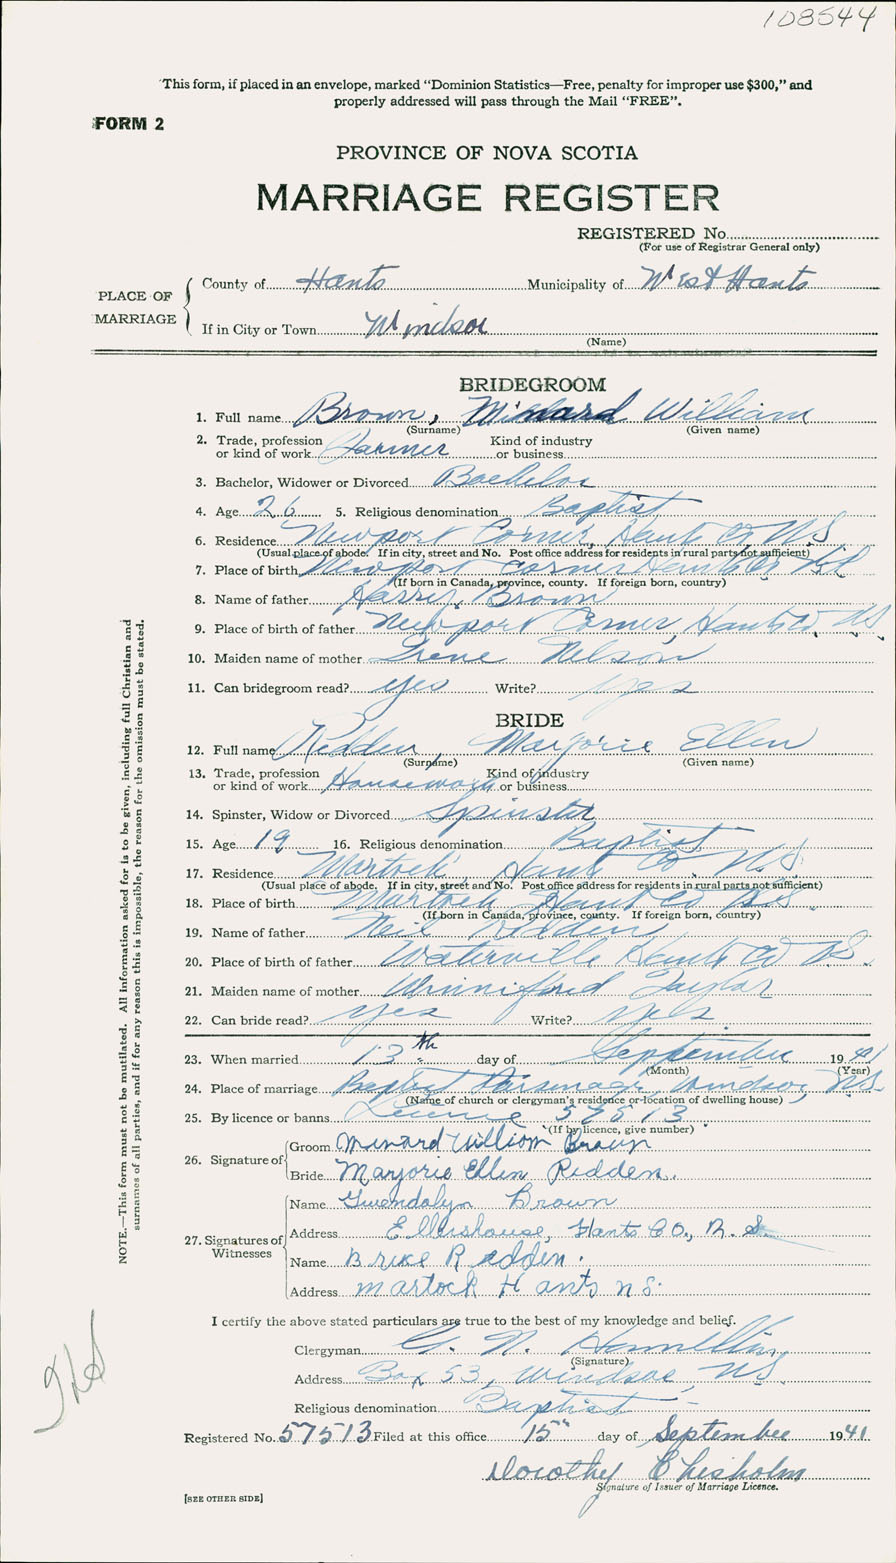 108544
This form, if placed in an envelope, marked “Dominion Statistics—Free, penalty for improper use $300,” and
properly addressed will pass through the Mail “FREE”.
FORM 2
PROVINCE OF NOVA SCOTIA
MARRIAGE REGISTER
REGISTERED No.
(For use of Registrar General only)
PLACE OF MARRIAGE
County of Hants Municipality of West Hants
If in City or Town Windsor
(Name)
BRIDEGROOM
1. Full name Brown, Minard William
(Surname) (Given name)
2. Trade, profession or kind of work Farmer Kind of industry or business
3. Bachelor, Widower or Divorced Bachelor
4. Age 26 5. Religious denomination Baptist
6. Residence Newport Corner, Hants Co, N.S.
(Usual place of abode. If in city, street and No. Post office address for residents in rural parts not sufficient)
7. Place of birth Newport Corner Hants Co, N.S.
(If born in Canada, province, county. If foreign born, country)
8. Name of father Harris Brown
9. Place of birth of father Newport Corner, Hants Co. N.S.
10. Maiden name of mother Irene Nelson
11. Can bridegroom read? yes Write? yes
BRIDE
12. Full name Redden, Marjorie Ellen
(Surname) (Given name)
13. Trade, profession or kind of work Housework Kind of industry or business
14. Spinster, Widow or Divorced Spinster
15. Age 19 16. Religious denomination Baptist
17. Residence Martock, Hants Co. N.S.
(Usual place of abode. If in city, street and No. Post office address for residents in rural parts not sufficient)
18. Place of birth Martock Hants Co N.S.
(If born in Canada, province, county. If foreign born, country)
19. Name of father Neil Redden
20. Place of birth of father Waterville Hants Co N.S.
21. Maiden name of mother Winniford Taylor
22. Can bride read? yes Write? yes
23. When married 13th day of September 1941
(Month) (Year)
24. Place of marriage Baptist Parsonage, Windsor, N.S.
(Name of church or clergyman's residence or location of dwelling house)
25. By licence or banns License 57513
(If by licence, give number)
26. Signature of
Groom Minard William Brown
Bride Marjorie Ellen Redden.
27. Signatures of Witnesses
Name Gwendolyn Brown
Address Ellershouse, Hants Co., N.S.
Name Brike Redden.
Address Martock Hants N.S.
I certify the above stated particulars are true to the best of my knowledge and belief.
Clergyman G. N.
(Signature)
Address Box 53, Windsor, N.S.
Religious denomination Baptist
Registered No. 57513 Filed at this office 15th day of September 1941
Dorothy Chisholm
Signature of Issuer of Marriage Licence.
[SEE OTHER SIDE]
NOTE.—This form must not be mutilated. All information asked for is to be given, including full Christian and
surnames of all parties, and if for any reason this is impossible, the reason for the omission must be stated.